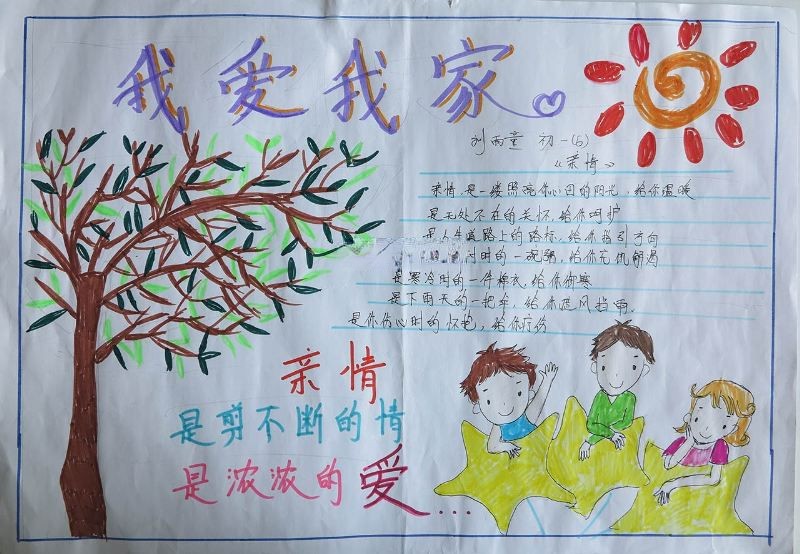 我爱我家
刘雨童 初一(5)
《亲情》
亲情是一缕照亮你心田的阳光，给你温暖
是无处不在的关怀，给你呵护
是人生道路上的路标，给你指引方向
时的一观，给你充饥解渴
是寒冷时的一件棉衣，给你御寒
是下雨天的一把伞，给你遮风挡雨。
是你伤心时的怀抱，给你疗伤
亲情
是剪不断的情
是浓浓的爱....